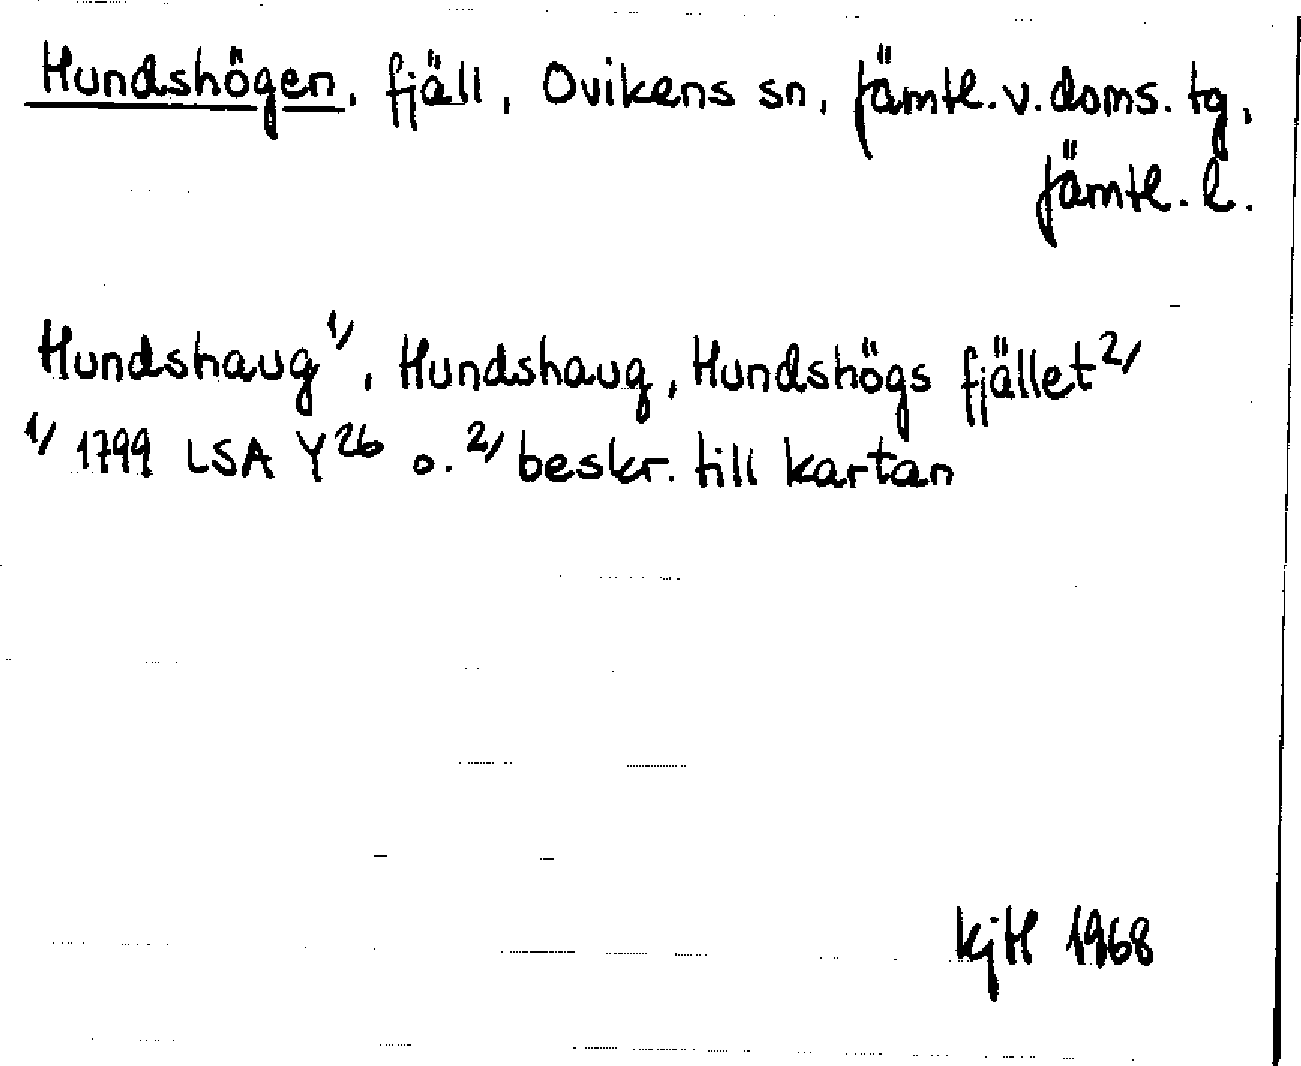 Hundshögen, fjäll, Ovikens sn, Jämtl. v. doms. tg,
Jämtl. l.
Hundshaug 1/, Hundshaug, Hundshögs fjället 2/
1/ 1799 LSA Y26 o. 2/ beskr. till kartan
KjH 1968